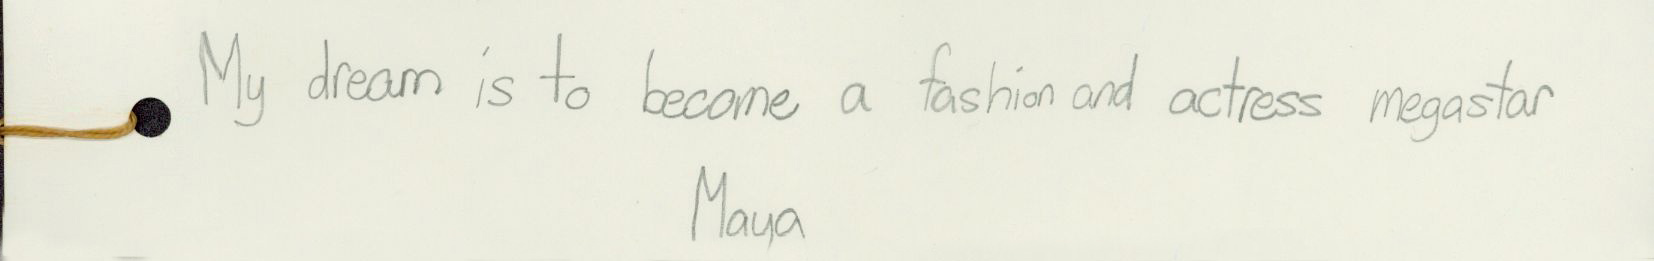 My dream is to become a fashion and actress megastar
Maya